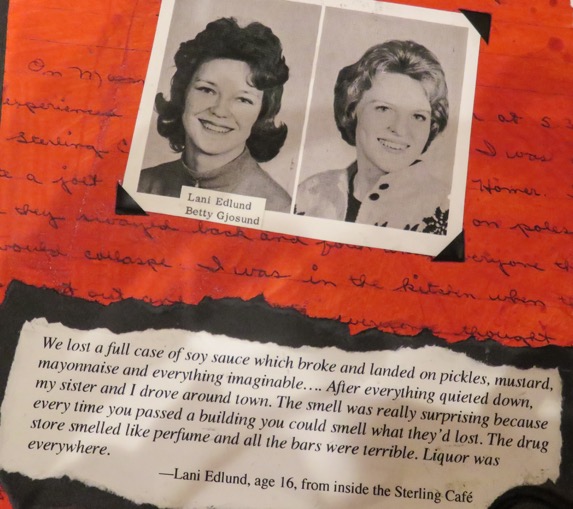 On M
experiences at 5 3
Sterling C I was
e a jolt Homer.
they swayed back and on poles
would collapse. I was in the kitchen when
out thought
Lani Edlund
Betty Gjosund
We lost a full case of soy sauce which broke and landed on pickles, mustard,
mayonnaise and everything imaginable.… After everything quieted down,
my sister and I drove around town. The smell was really surprising because
every time you passed a building you could smell what they'd lost. The drug
store smelled like perfume and all the bars were terrible. Liquor was
everywhere.
—Lani Edlund, age 16, from inside the Sterling Café